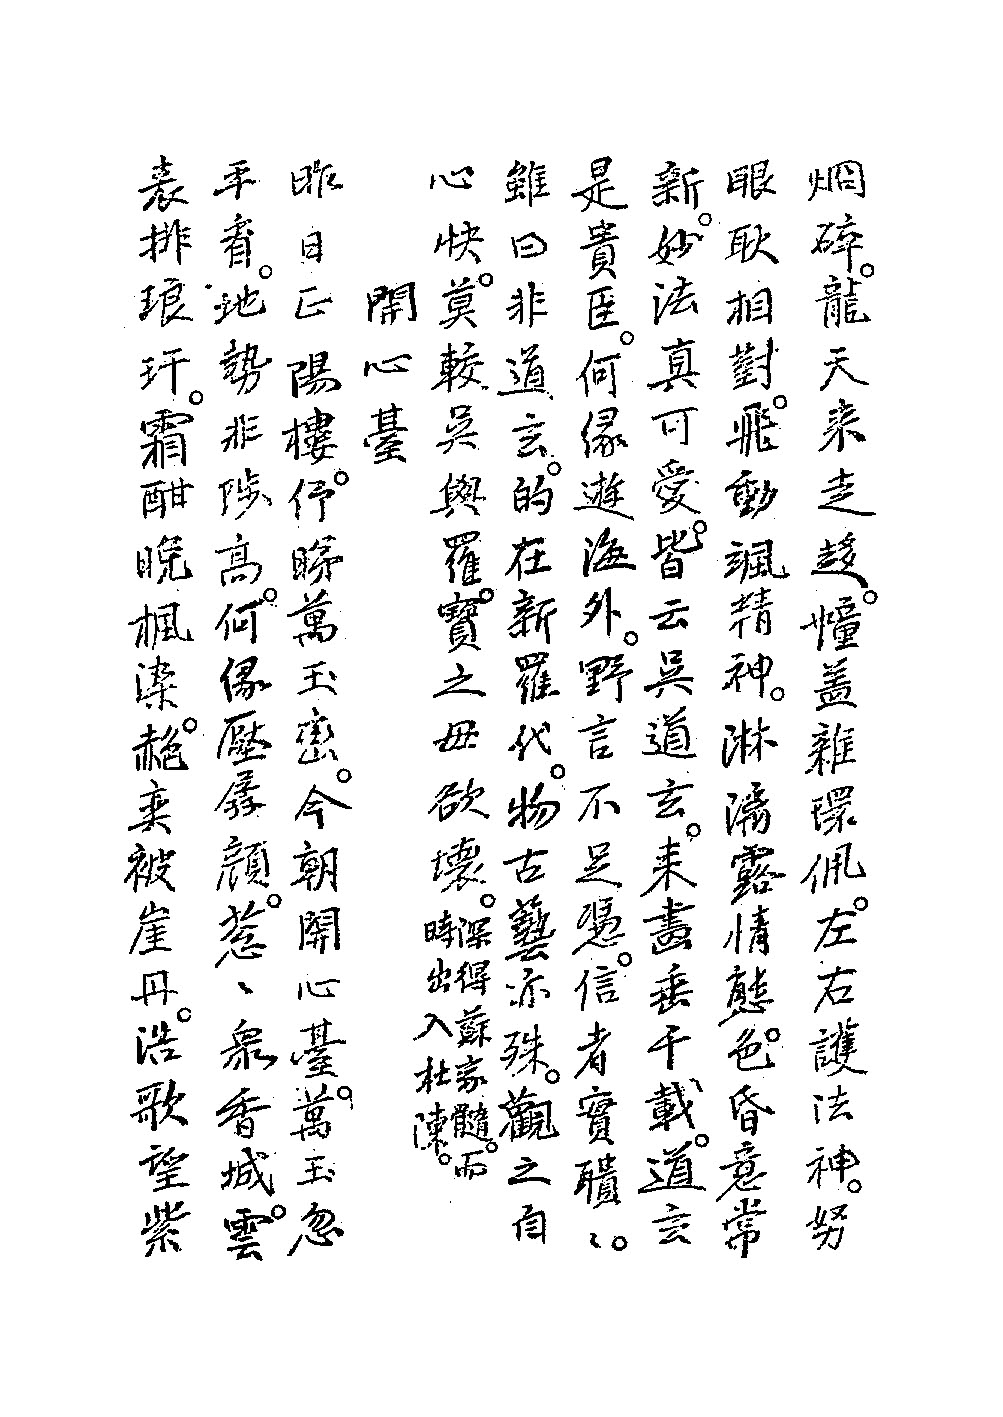 烟碎。龍天来走趍。幢盖雜環佩。左右護法神。努
眼耿相對。飛動颯精神。淋漓露情態。色昏意常
新。妙法真可愛。皆云吴道玄。来畵垂千載。道玄
是貴臣。何縁遊海外。野言不足憑。信者實聵〻。
雖曰非道玄。的在新羅代。物古藝亦殊。觀之自
心快。莫較吴與羅。寶之毋欲壞。深得蘇家髓。而時出入杜陳。
開心臺
昨日正陽樓。佇睇萬玉巒。今朝開心臺。萬玉忽
平看。地勢非陟高。何縁壓孱顔。惹〻衆香城。雲
裘排琅玕。霜酣晩楓染。赩奕被崖丹。浩歌望紫